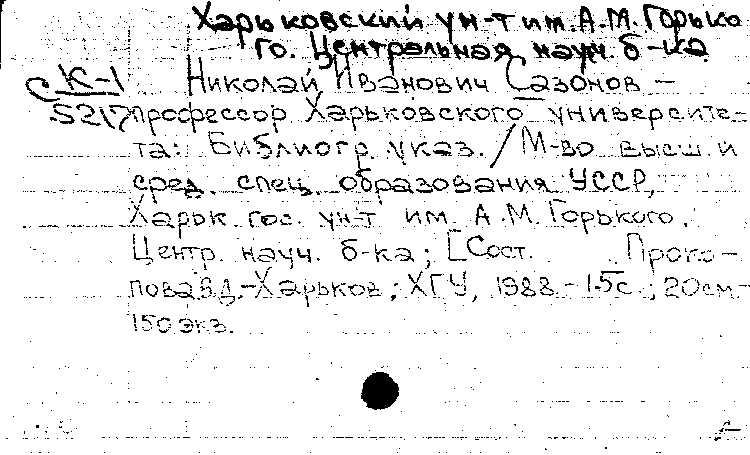 Харьковский ун-т им. А.М. Горько
го. Центральная науч. б-ка
К-1 Николай Иванович Сазонов –
5217 профессор Харьковского университе-
та: Библиогр. указ. / М-во высш. и
сред. спец. образования УССР,
Харьк. гос. ун-т им. А.М. Горького.
Центр. науч. б-ка; [Сост. Проко-
пова В.Д. – Харьков; ХГУ, 1988. – 15с.; 20см. –
150 экз.